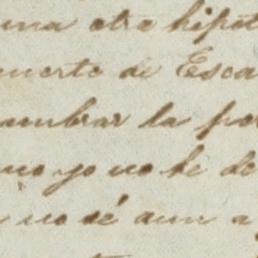 una otra hipot
muerte de Esca
umbrar la por
no yo no he de
no sé aun a